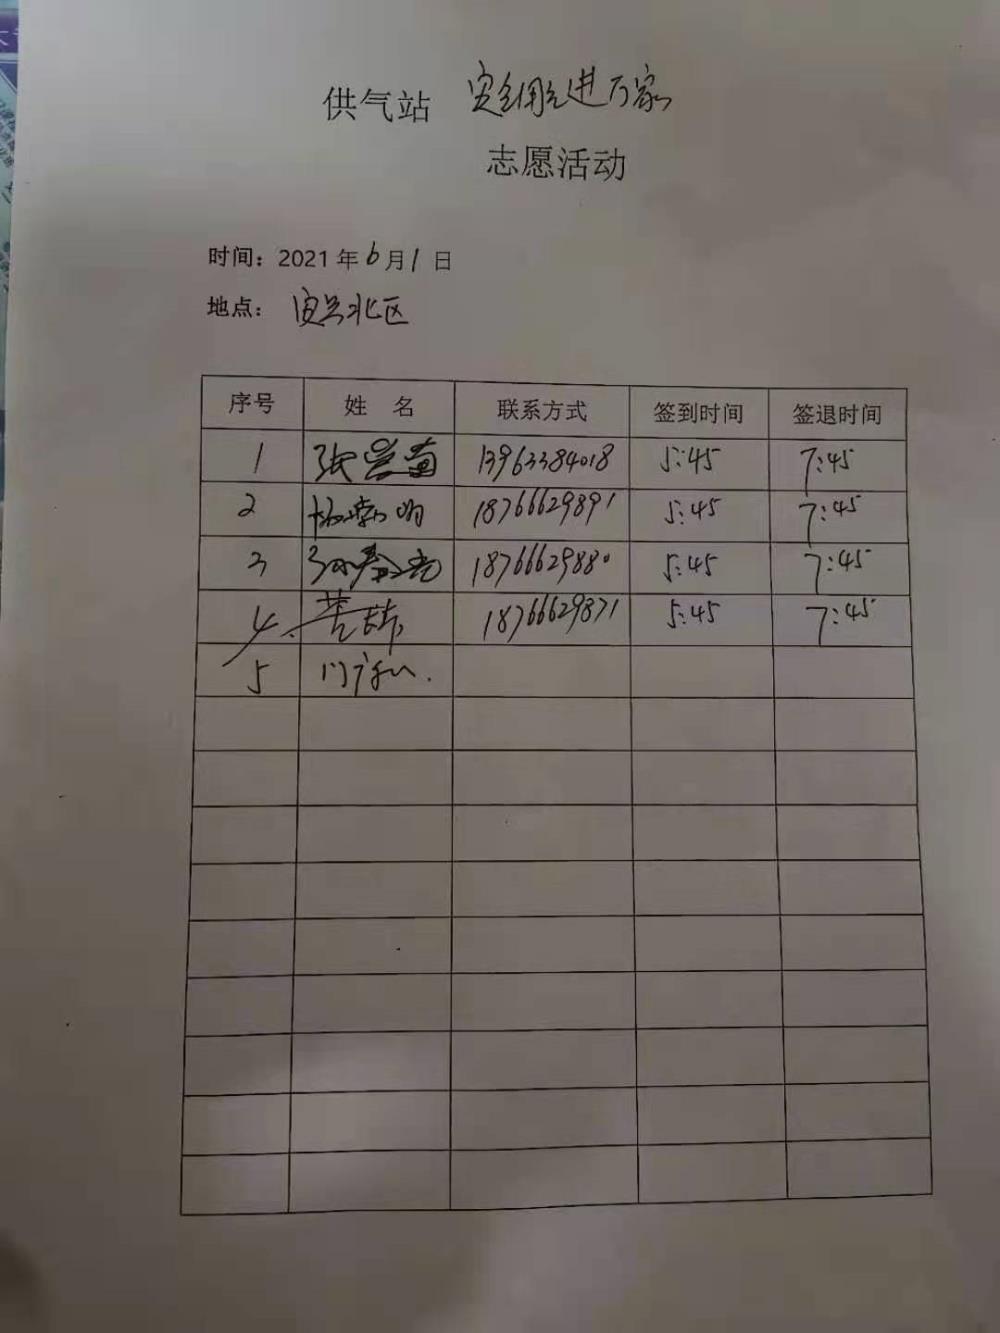 供气站 安全用气进万家
志愿活动
时间：2021年6月1日
地点： 北区
序号 姓 名 联系方式 签到时间 签退时间
1 张 13963384018 5:45 7:45
2 18766629891 5:45 7:45
3 18766629880 5:45 7:45
4 18766629871 5:45 7:45
5